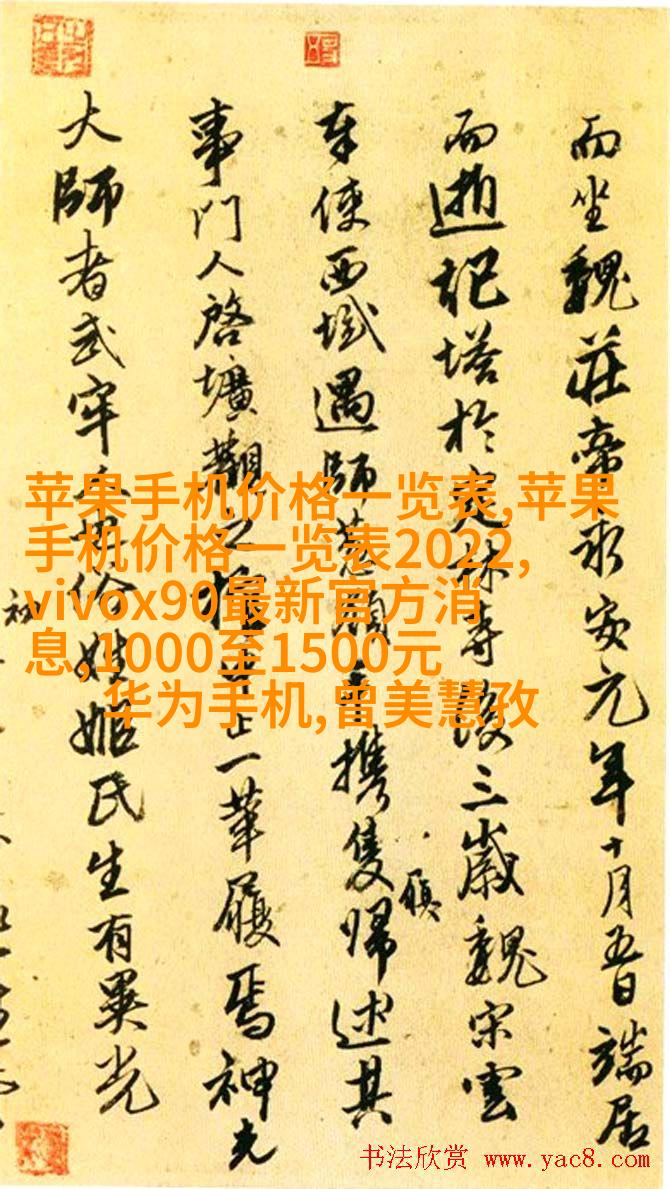 而坐魏莊帝永安元年十月五日端居
而逝記塔於定林寺後三歲魏宋雲
奉使西域遇師葱嶺手攜隻履歸述其
事門人啓壙觀之止一革履焉神光
大師者武牢人俗姓姬氏生有異光
苹果手机价格一览表,苹果
手机价格一览表2022,
vivox90最新官方消
息,1000至1500元
华为手机,曾美慧孜
书法欣赏 www.yac8.com